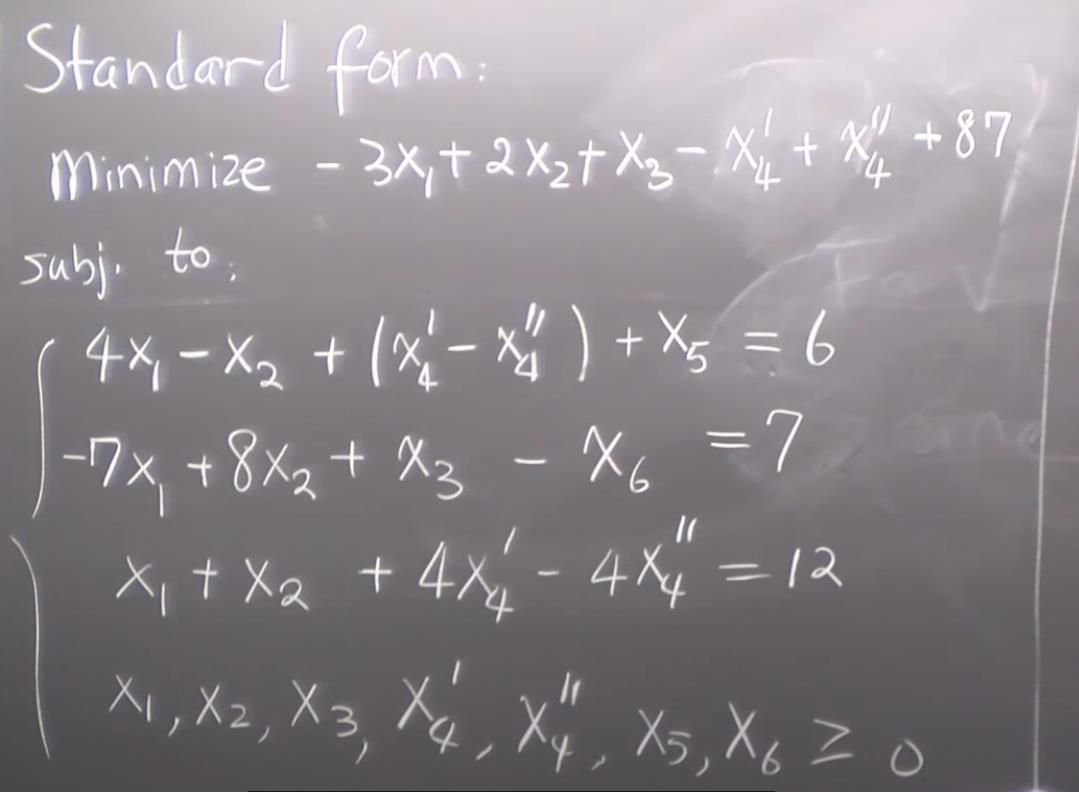 Standard form:
Minimize -3x₁ + 2x₂ + x₃ - x₄' + x₄'' + 87
subj. to:
4x₁ - x₂ + (x₄' - x₄'') + x₅ = 6
-7x₁ + 8x₂ + x₃ - x₆ = 7
x₁ + x₂ + 4x₄' - 4x₄'' = 12
x₁, x₂, x₃, x₄', x₄'', x₅, x₆ ≥ 0